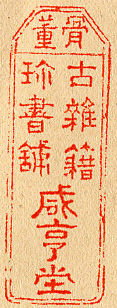 骨董
古雜籍
珍書舖
咸亨坣